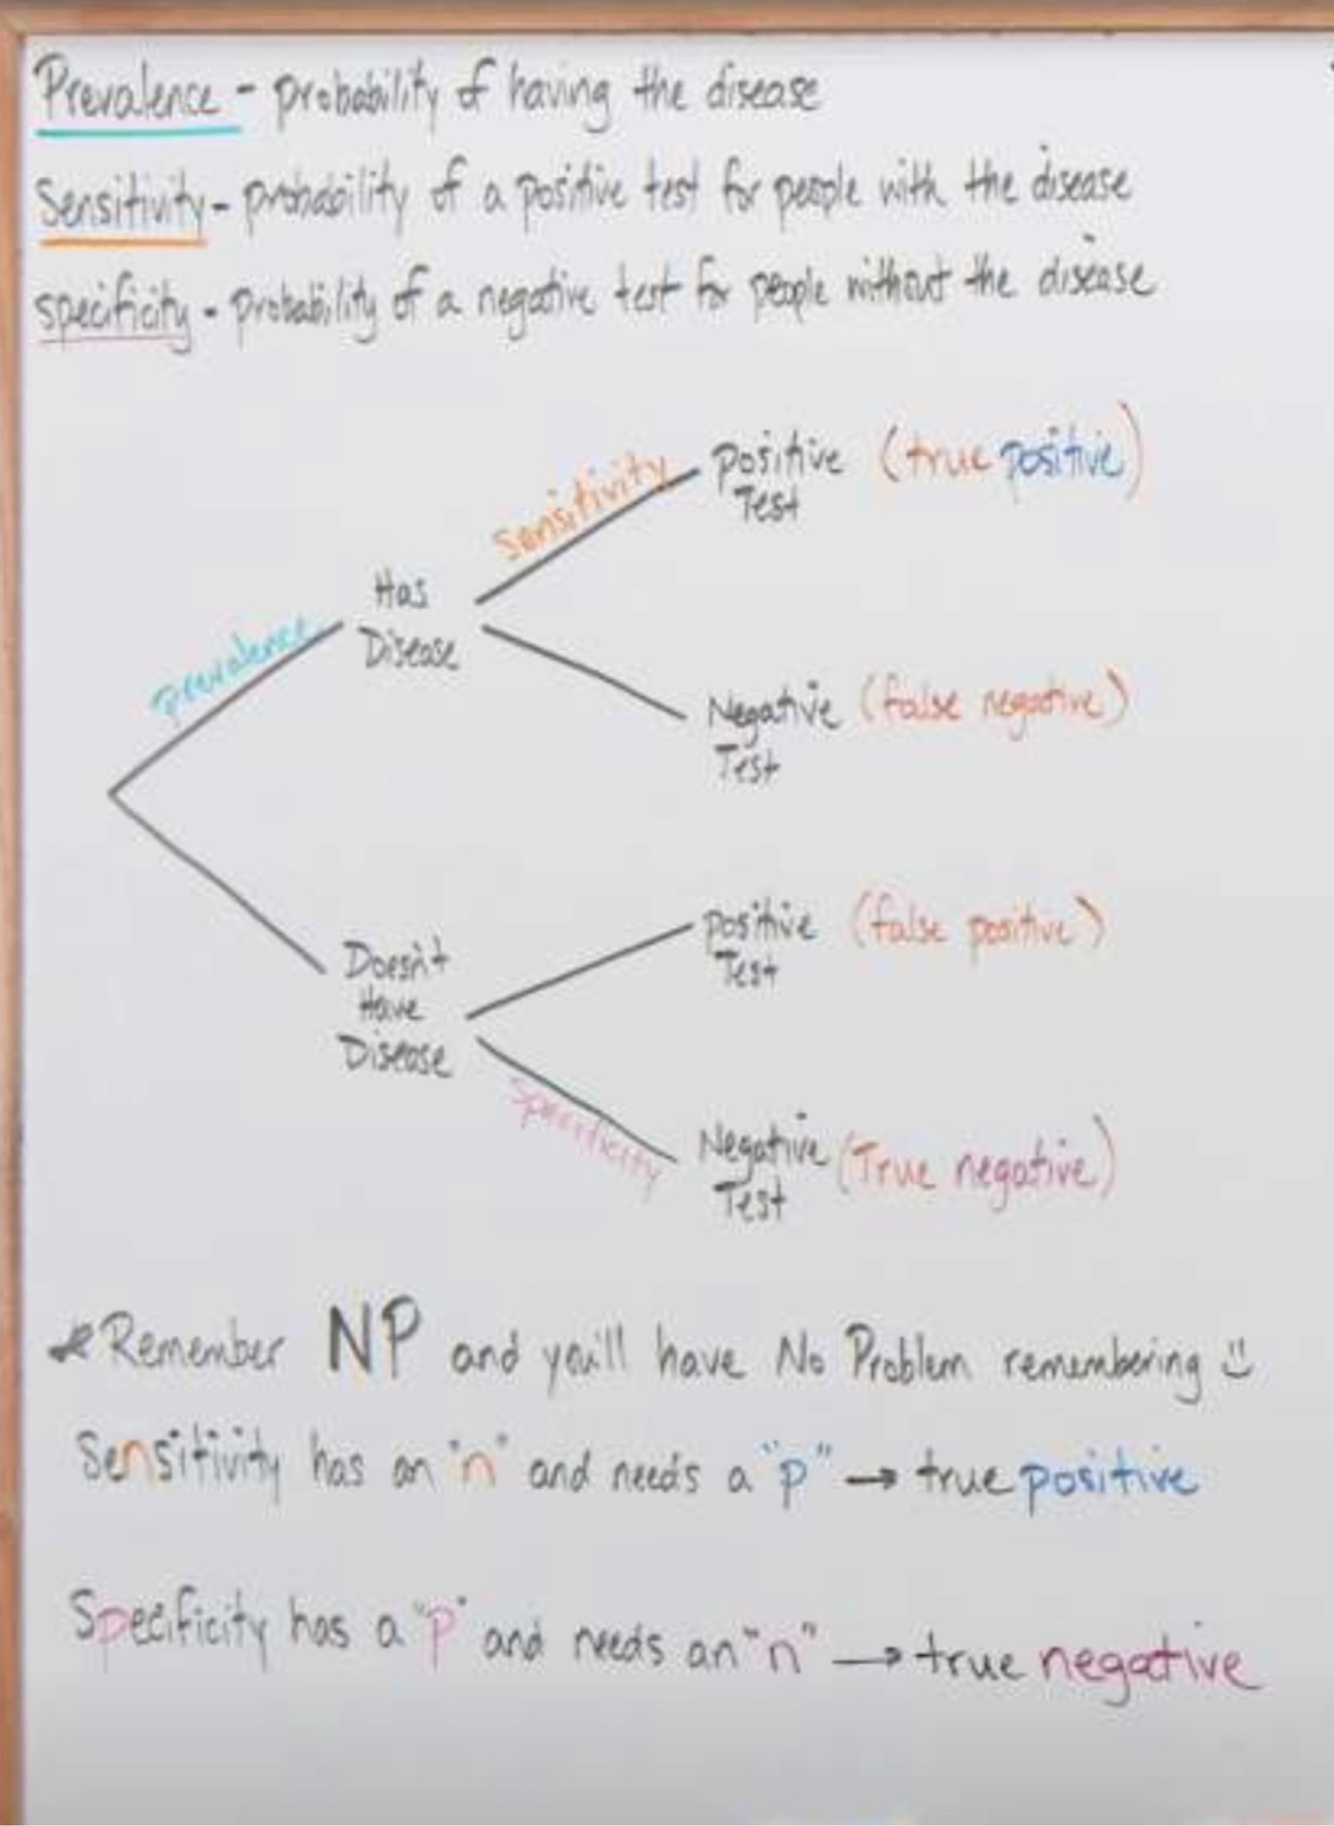 Prevalence - probability of having the disease
Sensitivity - probability of a positive test for people with the disease
specificity - probability of a negative test for people without the disease
prevalence
Has
Disease
sensitivity
positive (true positive)
Test
Negative (false negative)
Test
Doesn't
Have
Disease
positive (false positive)
Test
specificity
Negative (True negative)
Test
* Remember NP and you'll have No Problem remembering :)
Sensitivity has an "n" and needs a "p" → true positive
Specificity has a "p" and needs an "n" → true negative